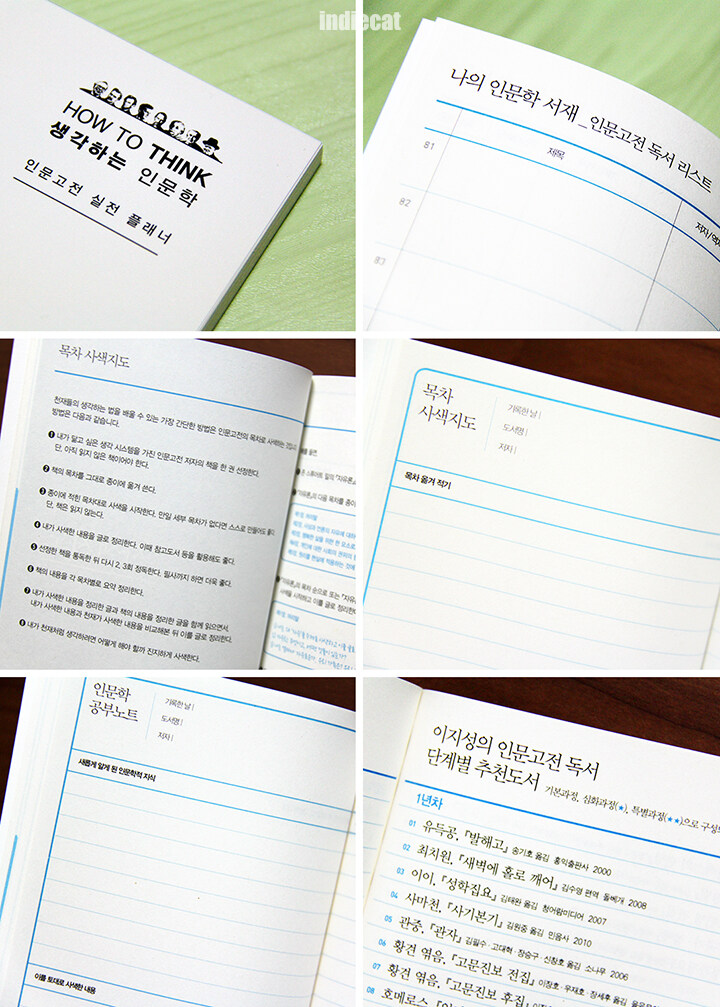 indiecat
HOW TO THINK
생각하는 인문학
인문고전 실전 플래너
나의 인문학 서재_인문고전 독서 리스트
제목
저자/역자
81
82
83
목차 사색지도
천재들의 생각하는 법을 배울 수 있는 가장 간단한 방법은 인문고전의 목차로 사색하는 것입니다.
방법은 다음과 같습니다.
1 내가 닮고 싶은 생각 시스템을 가진 인문고전 저자의 책을 한 권 선정한다.
단, 아직 읽지 않은 책이어야 한다.
2 책의 목차를 그대로 종이에 옮겨 쓴다.
3 종이에 적힌 목차대로 사색을 시작한다. 만일 세부 목차가 없다면 스스로 만들어도 좋다.
단, 책은 읽지 않는다.
4 내가 사색한 내용을 글로 정리한다. 이때 참고도서 등을 활용해도 좋다.
5 선정한 책을 통독한 뒤 다시 2, 3회 정독한다. 필사까지 하면 더욱 좋다.
6 책의 내용을 각 목차별로 요약 정리한다.
7 내가 사색한 내용을 정리한 글과 책의 내용을 정리한 글을 함께 읽으면서,
내가 사색한 내용과 천재가 사색한 내용을 비교해본 뒤 이를 글로 정리한다.
8 내가 천재처럼 생각하려면 어떻게 해야 할까 진지하게 사색한다.
목차
사색지도
기록한 날 |
도서명 |
저자 |
목차 옮겨 적기
인문학
공부노트
기록한 날 |
도서명 |
저자 |
새롭게 알게 된 인문학적 지식
이를 토대로 사색한 내용
이지성의 인문고전 독서
단계별 추천도서 기본과정, 심화과정(★), 특별과정(★★)으로 구성
1년차
01 유득공, 『발해고』 송기호 옮김 홍익출판사 2000
02 최치원, 『새벽에 홀로 깨어』 김수영 편역 돌베개 2008
03 이이, 『성학집요』 김태완 옮김 청어람미디어 2007
04 사마천, 『사기본기』 김원중 옮김 민음사 2010
05 관중, 『관자』 김필수·고대혁·장승구·신창호 옮김 소나무 2006
06 황견 엮음, 『고문진보 전집』 이장우·우재호·장세후 옮김 을유문
07 황견 엮음, 『고문진보 후집』
08 호메로스,